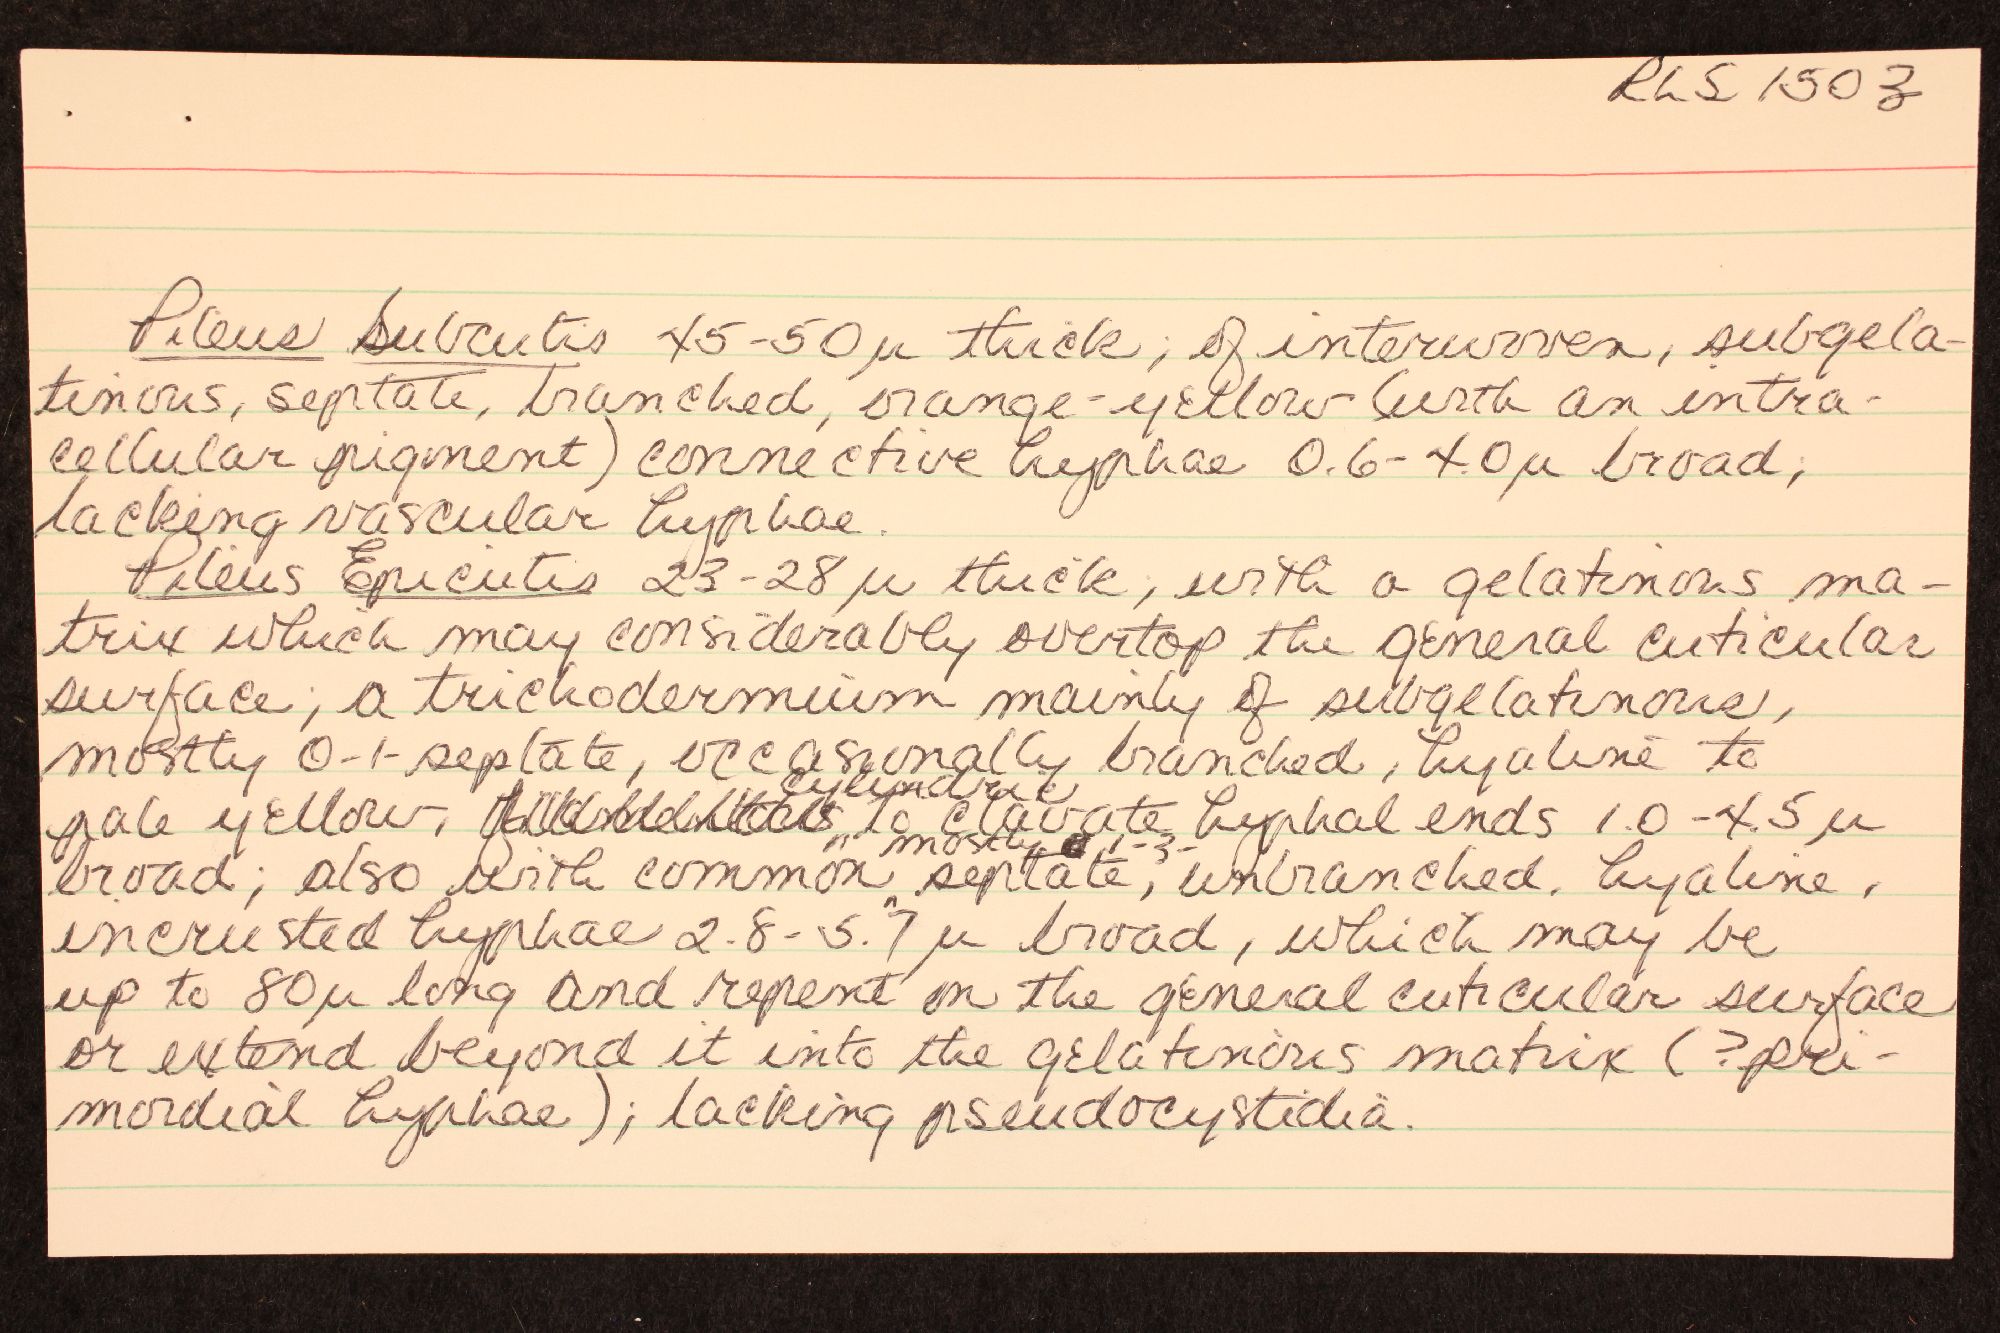 RLS 1503
Pileus Subcutis 45-50µ thick; of interwoven, subgela-
tinous, septate, branched, orange-yellow (with an intra-
cellular pigment) connective hyphae 0.6-4.0µ broad;
lacking vascular hyphae.
Pileus Epicutis 23-28µ thick, with a gelatinous ma-
trix which may considerably overtop the general cuticular
surface; a trichodermium mainly of subgelatinous,
mostly 0-1-septate, occasionally branched, hyaline to
cylindric
pale yellow, to clavate hyphal ends 1.0-4.5µ
mostly 1-3-
broad; also with common septate, unbranched, hyaline,
incrusted hyphae 2.8-5.7µ broad, which may be
up to 80µ long and repent on the general cuticular surface
or extend beyond it into the gelatinous matrix (?pri-
mordial hyphae); lacking pseudocystidia.